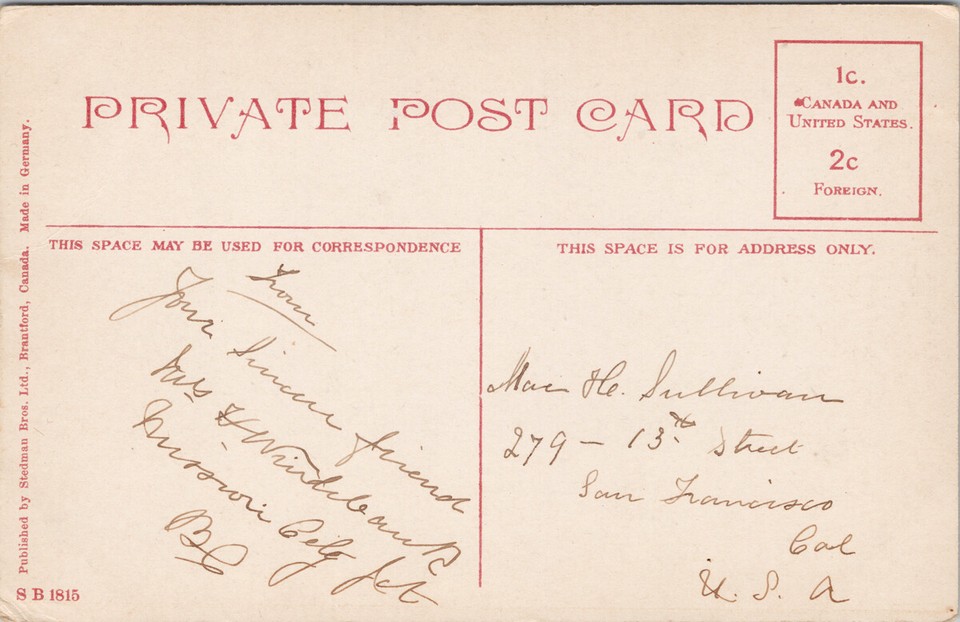 PRIVATE POST CARD
1c.
CANADA AND
UNITED STATES.
2c
FOREIGN.
THIS SPACE MAY BE USED FOR CORRESPONDENCE
From
Your Sincere friend
Mrs H Windebank
Mission City Jct
B C
THIS SPACE IS FOR ADDRESS ONLY.
Mae H. Sullivan
279 – 13th Street
San Francisco
Cal
U. S. A
Published by Stedman Bros. Ltd., Brantford, Canada. Made in Germany.
S B 1815